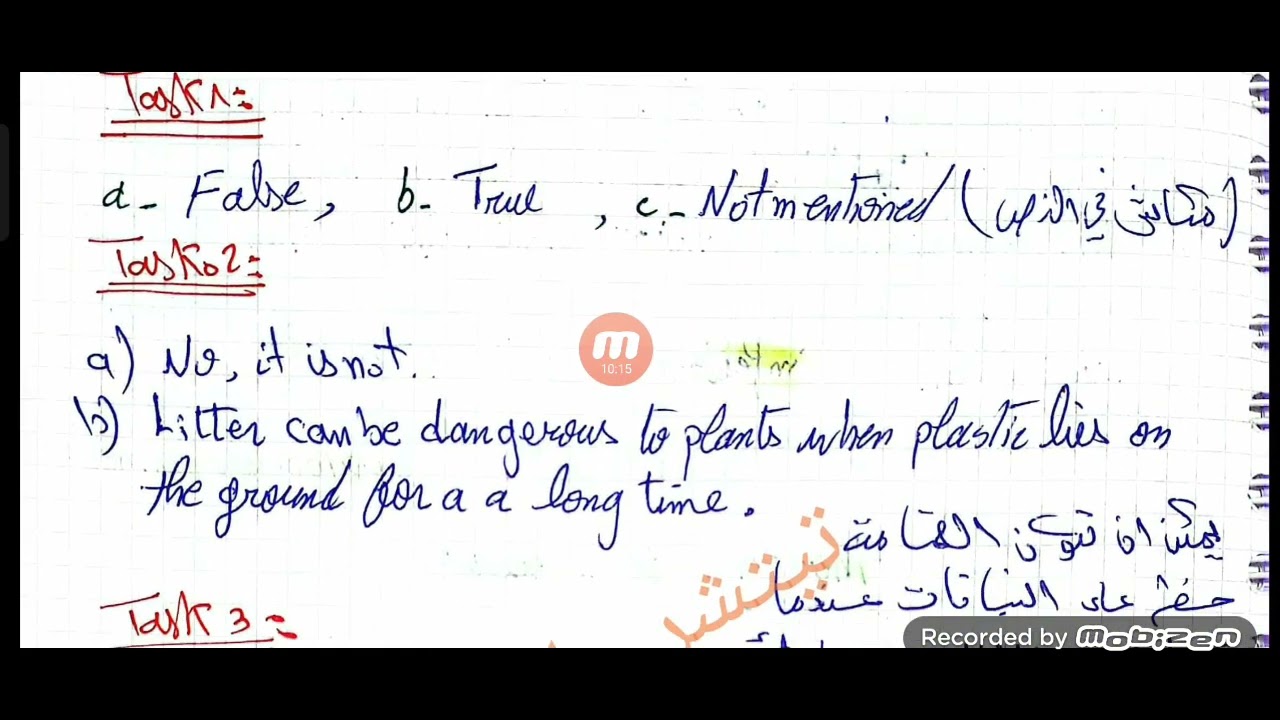 Task 1:
a - False, b - True, c - Not mentioned (في النص)
Task 2:
a) No, it is not.
10:15
b) Litter can be dangerous to plants when plastic lies on
the ground for a a long time.
يمكن ان تكون القمامة
خطر على النباتات عندما
Task 3:
Recorded by mobizen